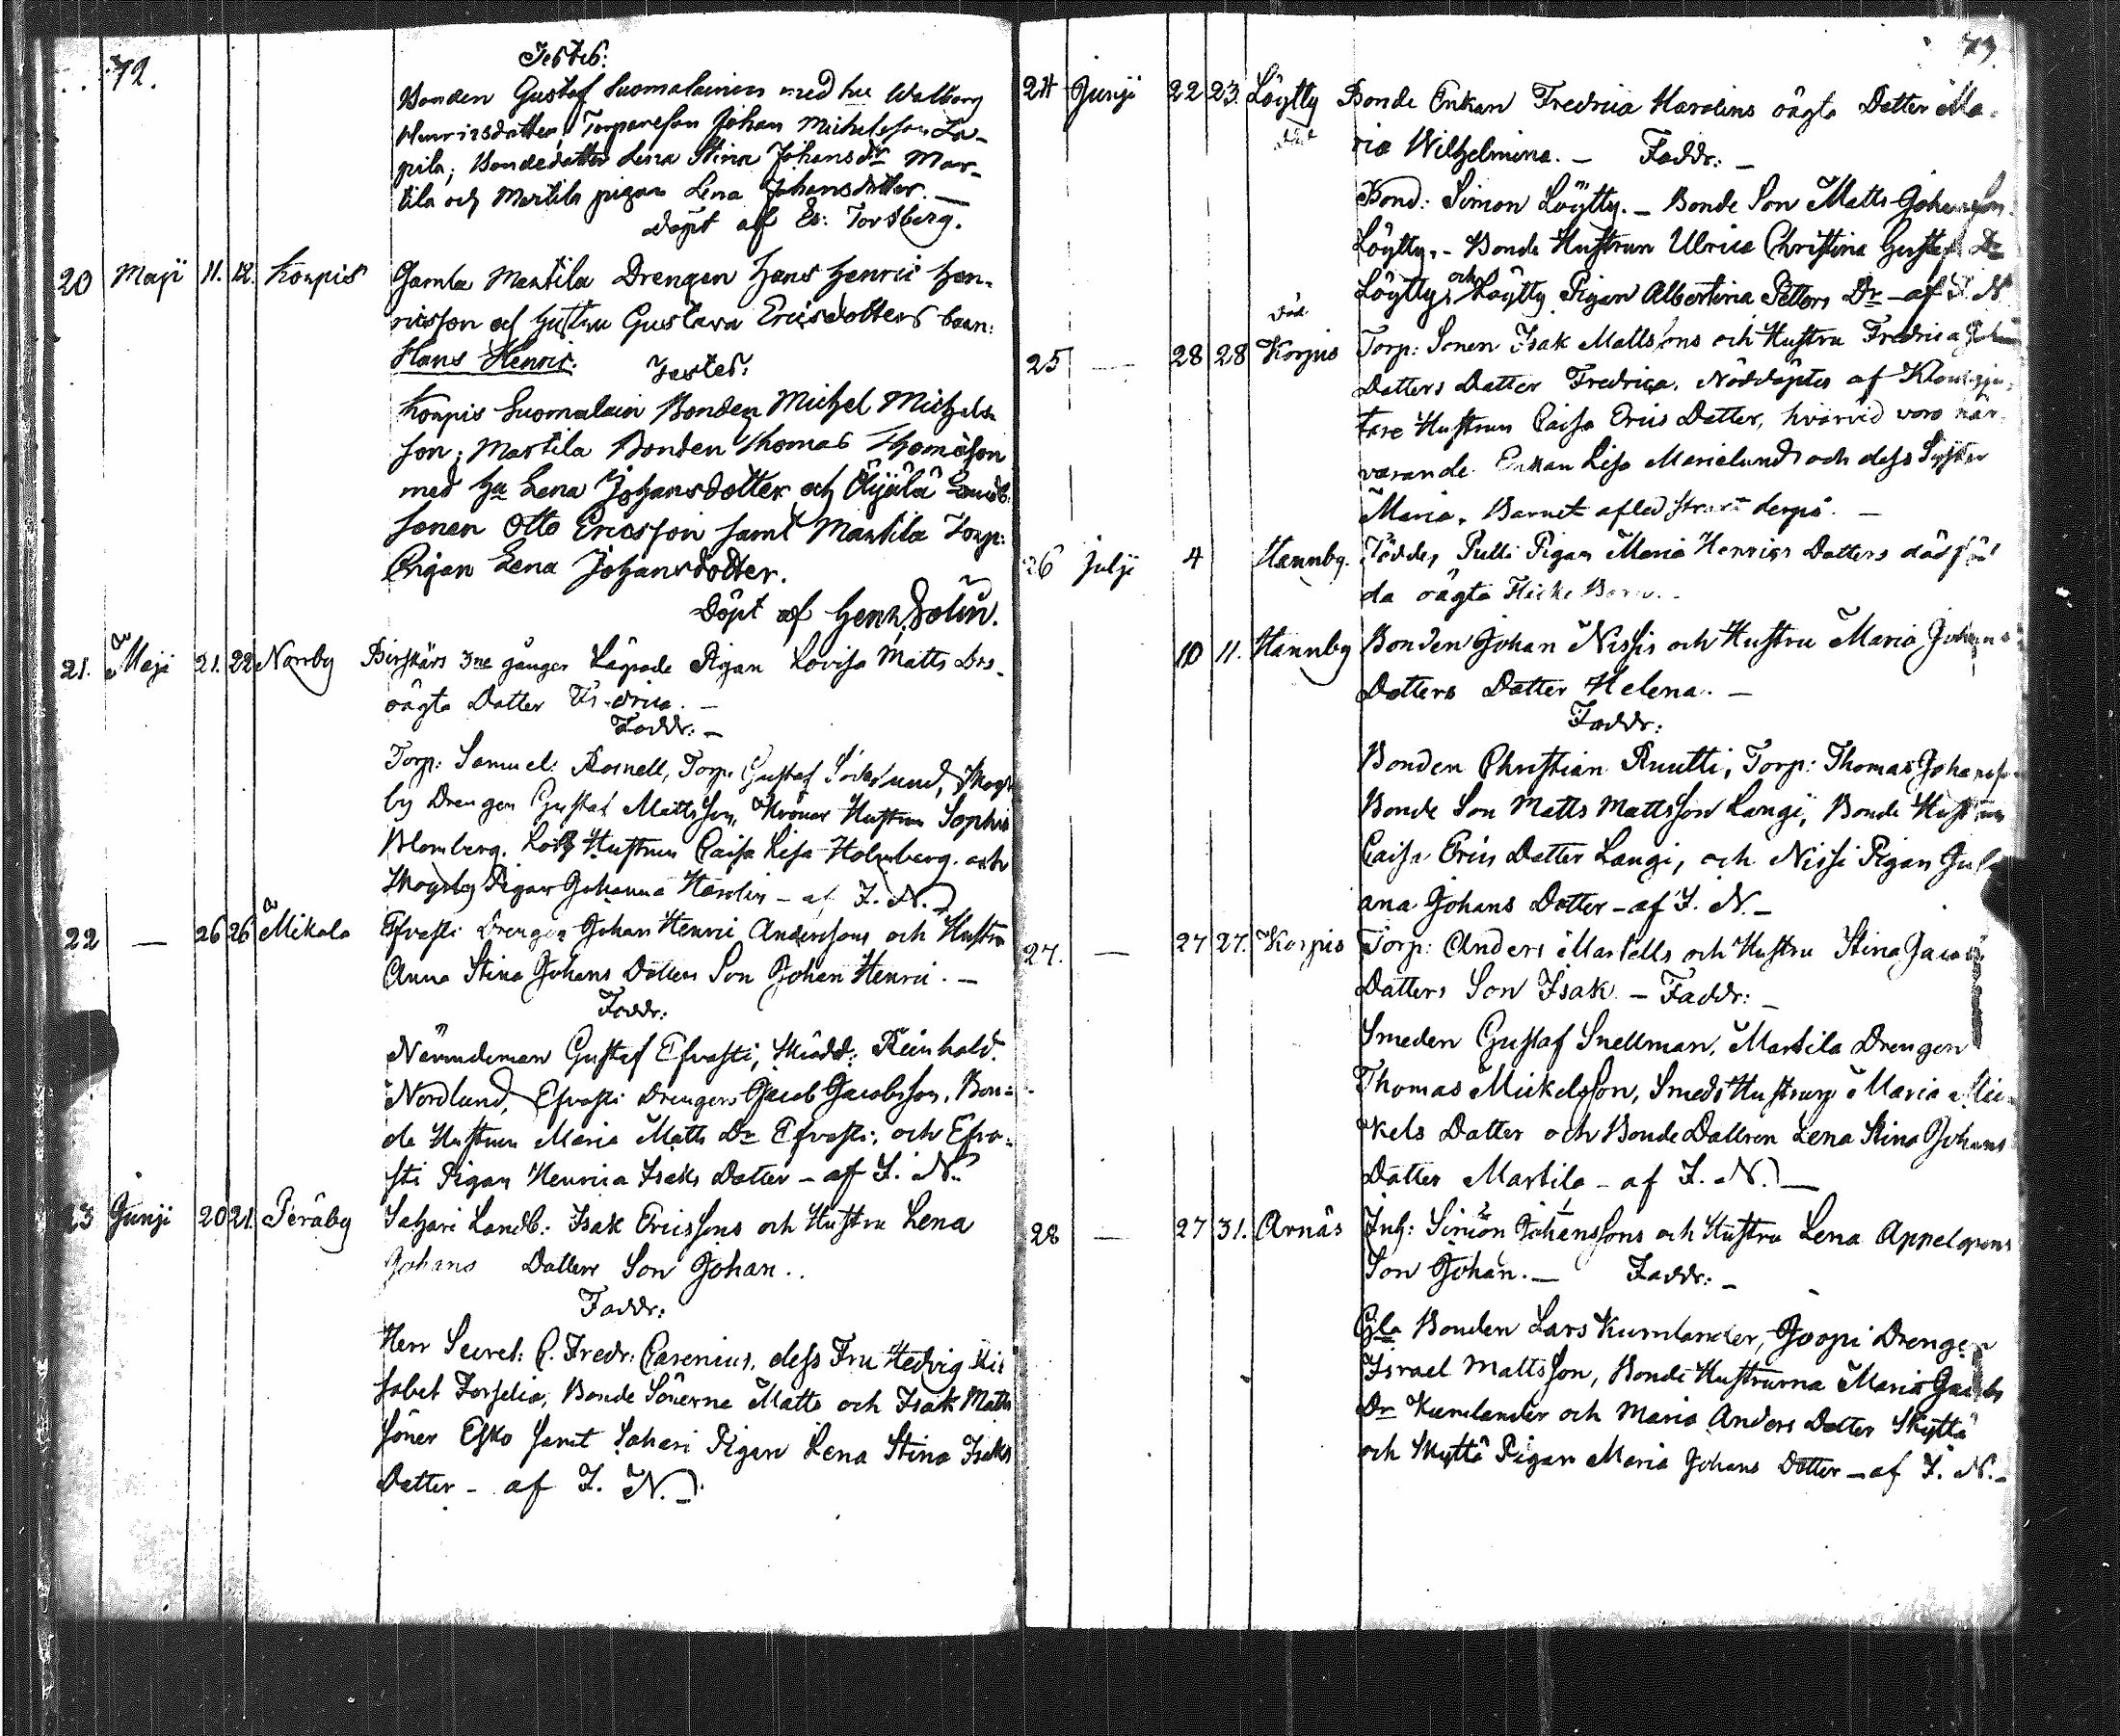 72.
Testes:
Bonden Gustaf Suomalainen med hu Walborg
Henricsdotter, Torpareson Johan Michelsson La-
pila; Bondedotter Lena Stina Johansdr Mar-
tila och Martila pigan Lena Johansdotter. —
Döpt af Er: Torsberg.
20 Maji 11. 12. Korpis Gamla Martila Drengen Hans Henric Hen-
ricsson och hustru Gustava Ericsdotters barn:
Hans Henric. Testes:
Korpis Suomalain Bonden Michel Michels-
son; Martila Bonden Thomas Thomasson
med hu Lena Johansdotter och Öijälä Landb:
sonen Otto Ericsson samt Martila Torp:
Pigan Lena Johansdotter.
Döpt af Henr. Dolin.
21. Maji 21. 22 Norrby Birskärs 3ne gånger Lägrade Pigan Lovisa Matts Drs
oägta Datter Fredrica. —
Faddr: —
Torp: Samuel Rosnell, Torp: Gustaf Söderlund, Skogs
by Drengen Gustaf Mattsson, Hustrun Sophia
Blomberg. Hustrun Caisa Lisa Holmberg. och
Skogsby Pigan Johanna Harolin – af I. N.
22 — 26 26 Mikola Efvasti Drengen Johan Henric Anderssons och Hustru
Anna Stina Johans Datters Son Johan Henric. —
Faddr:
Nämndeman Gustaf Efvasti, Skrädd: Reinhold
Nordlund, Efvasti Drengen Jacob Jacobsson, Bon-
de Hustrun Maria Matts Dr Efvasti, och Efva-
sti Pigan Henrica Isaks Datter – af I. N.
23 Junji 20 21. Peräby Sahari Landb: Isak Ericssons och Hustru Lena
Johans Datters Son Johan..
Faddr:
Herr Secret: C. Fredr: Carenius, dess Fru Hedvig Eli
sabet Forselia, Bonde Sönerne Matts och Isak Matts
söner Esko samt Sahari Pigan Lena Stina Isaks
Datter – af I. N.
73.
24 Junji 22 23. Löytty Bonde Enkan Fredrica Harolins oägta Datter Ma-
död ria Wilhelmina. — Faddr: —
Bond: Simon Löytty. – Bonde Son Matts Johansson
Löytty. – Bonde Hustrun Ulrica Christina Gustafs Dr
Löytty, och Löytty Pigan Albertina Petters Dr – af I. N.
död
25 — 28 28 Korpis Torp: Sonen Isak Mattssons och Hustru Fredrica Johans
Datters Datter Fredrica. Nöddöptes af
Hustrun Caisa Erics Datter, hvarvid voro när-
varande Enkan Lisa Marielund och dess Syster
Maria. Barnet afled straxt derpå. —
26 Julji 4 Hannby. Föddes Pulli Pigan Maria Henrics Datters dödfö
da oägta Flicke Barn.
10 11. Hannby Bonden Johan Nissis och Hustru Maria Johans
Datters Datter Helena. —
Faddr:
Bonden Christian Ruutti, Torp: Thomas Johansson
Bonde Son Matts Mattsson Langi, Bonde Hustrun
Caisa Erics Datter Langi, och Nissi Pigan Juli
ana Johans Datter – af I. N. –
27. — 27 27. Korpis Torp: Anders Martells och Hustru Stina Jacobs
Datters Son Isak. – Faddr: –
Smeden Gustaf Snellman, Martila Drengen
Thomas Mickelsson, Smeds Hustrun Maria Mic-
kels Datter och Bonde Dattren Lena Stina Johans
Datter Martila – af I. N. —
28 — 27 31. Arnäs Inh: Simon Johanssons och Hustru Lena Appelgrens
Son Johan. — Faddr: –
Gla Bonden Lars Kumlander, Joopi Drengen
Israel Mattsson, Bonde Hustrurna Maria Jacobs
Dr Kumlander och Maria Anders Datter Skyttä
och Skyttä Pigan Maria Johans Datter – af I. N. –